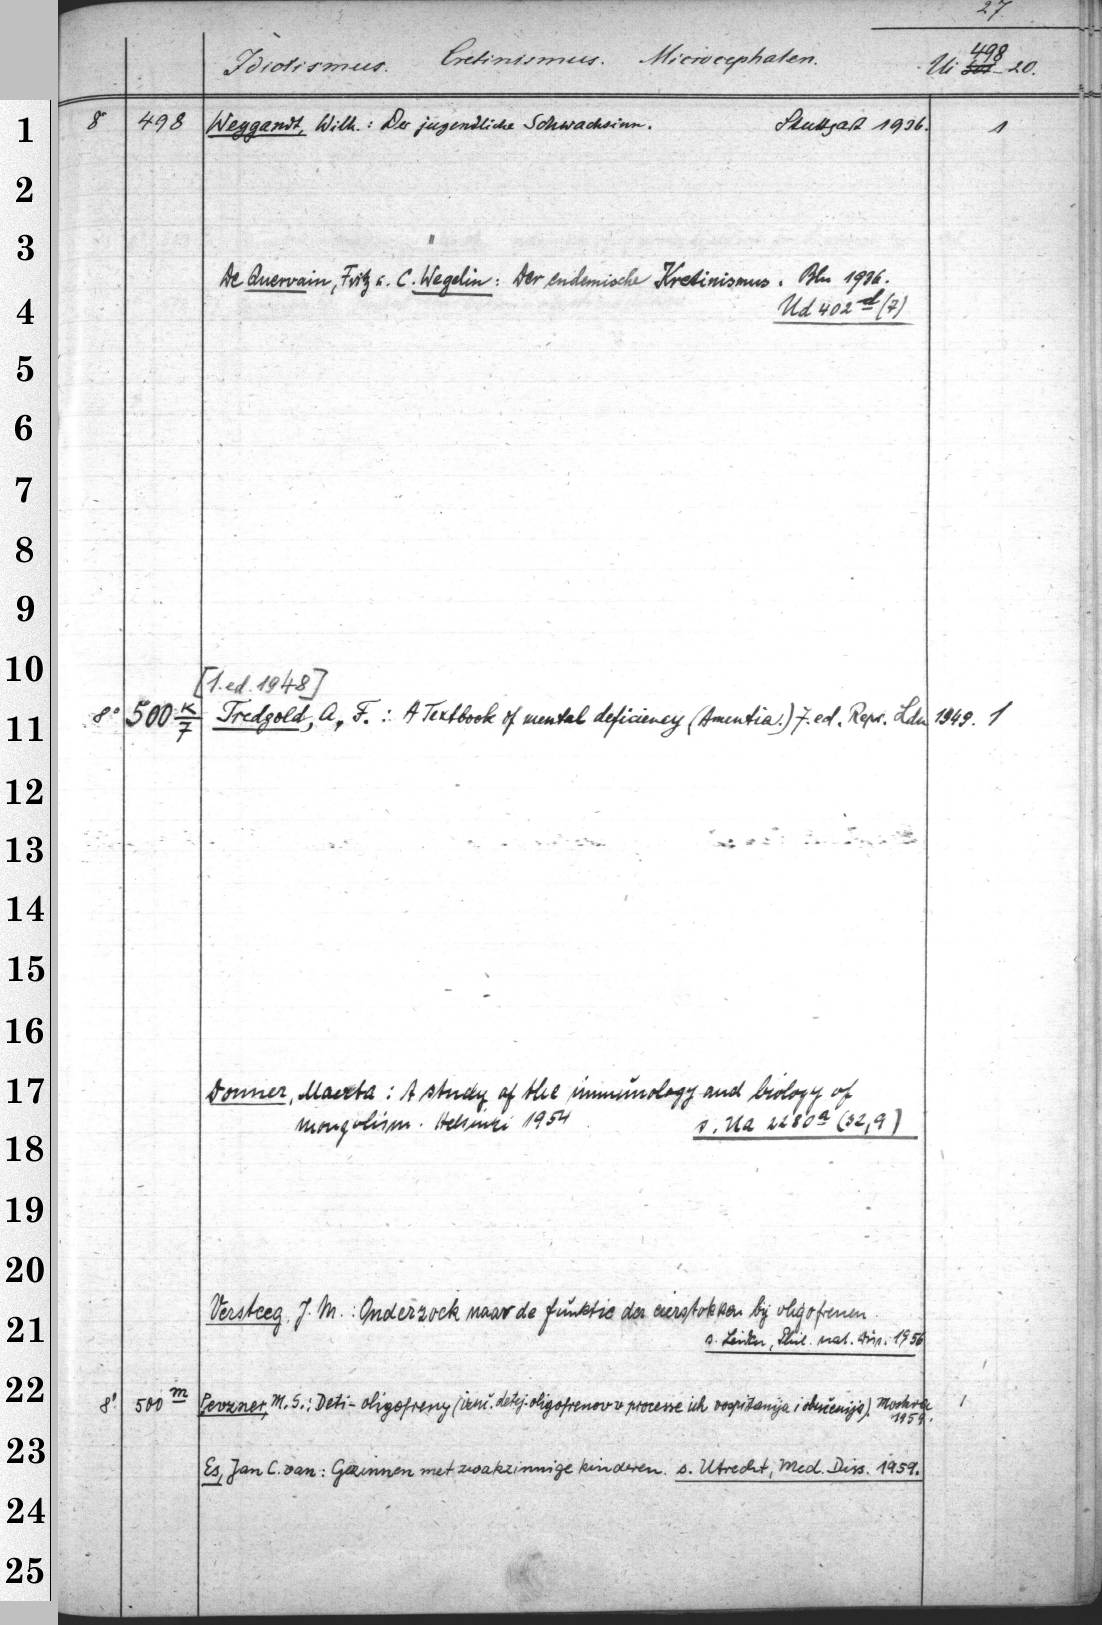 27
Idiotismus. Cretinismus. Microcephalen. Ui 498 501-20.
1 8 498 Weygandt, Wilh.: Der jugendliche Schwachsinn. Stuttgart 1936. 1
2
3
De Quervain, Fritz u. C. Wegelin: Der endemische Kretinismus. Bln 1936.
4 Ud 402 d (7)
5
6
7
8
9
10 [1. ed. 1948]
11 8° 500 K/7 Tredgold, A. F.: A Textbook of mental deficiency (Amentia.) 7. ed. Repr. Ldn 1949. 1
12
13
14
15
16
17 Donner, Maerta: A study of the immunology and biology of
mongolism. Helsinki 1954 s. Ua 2280 a (32,9)
18
19
20
21 Versteeg, J. M.: Onderzoek naar de funktie der eierstokken bij oligofrenen.
s. Leiden, Phil. nat. Diss. 1956
22 8° 500 m Pevzner, M. S.: Deti-oligofreny (izuč. detej-oligofrenov v processe ich vospitanija i obučenija). Moskva 1
1959.
23
Es, Jan C. van: Gezinnen met zwakzinnige kinderen. s. Utrecht, Med. Diss. 1959.
24
25